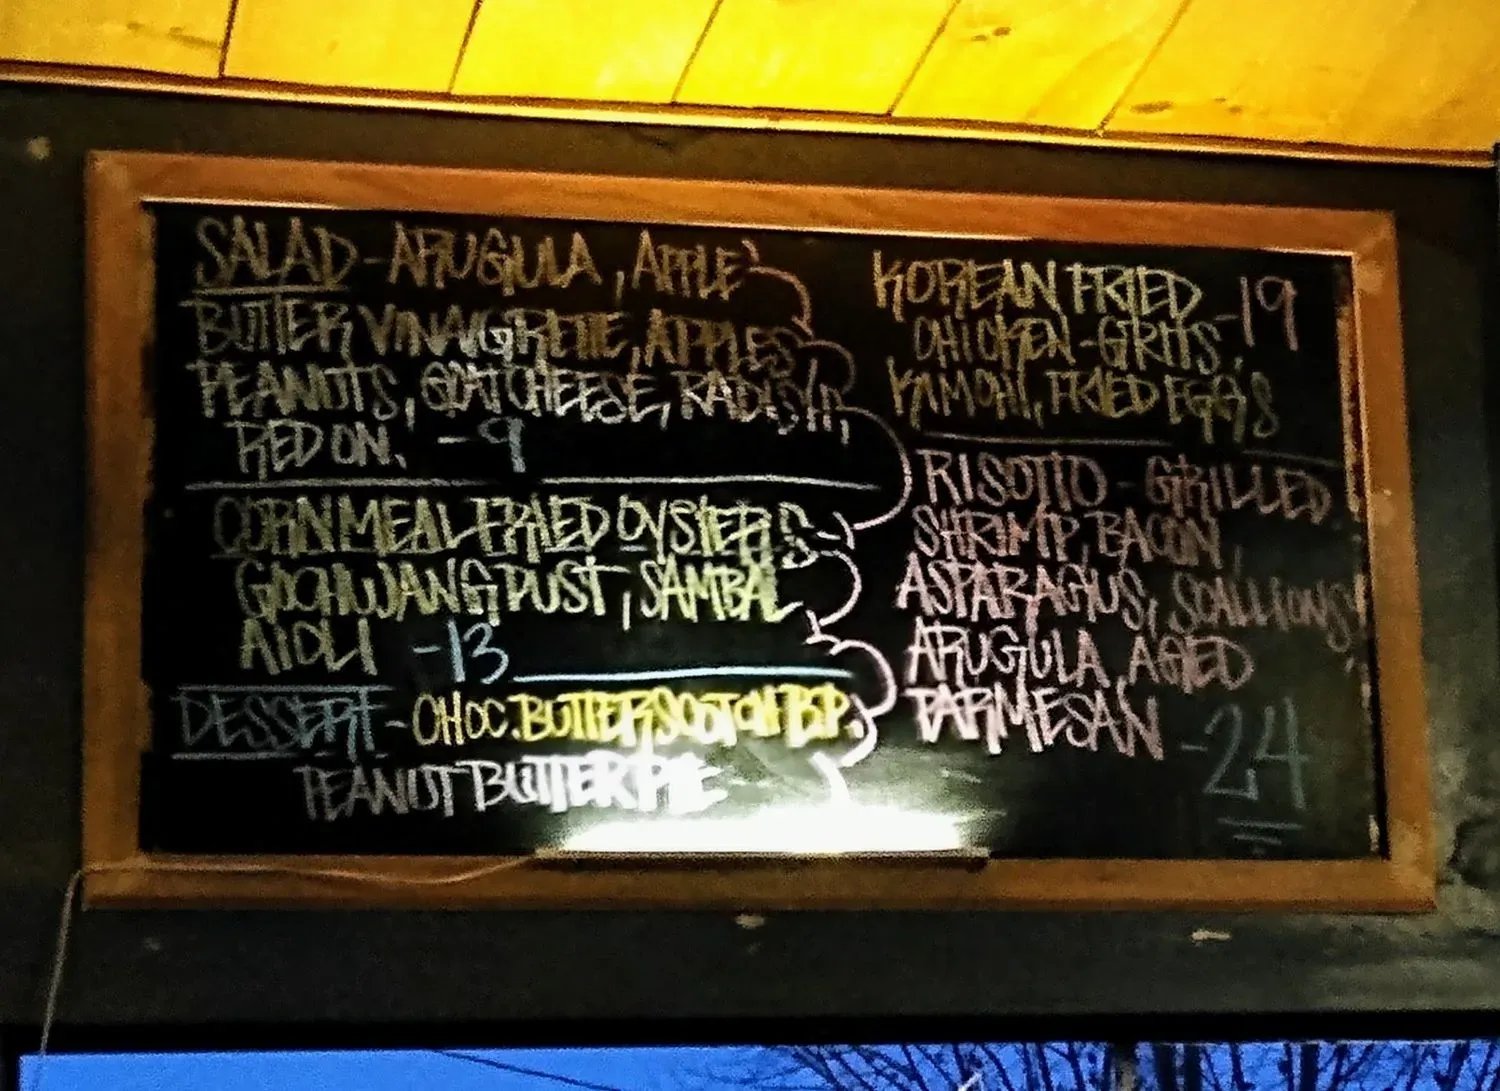 SALAD - ARUGULA, APPLE
BUTTER VINAIGRETTE, APPLES,
PEANUTS, GOAT CHEESE, RADISH,
RED ON. -9
CORNMEAL FRIED OYSTERS
GOCHUJANG DUST, SAMBAL
AIOLI -13
DESSERT - CHOC. BUTTERSCOTCH B.P.
PEANUT BUTTER PIE
KOREAN FRIED
CHICKEN - GRITS, -19
KIMCHI, FRIED EGGS
RISOTTO - GRILLED
SHRIMP, BACON,
ASPARAGUS, SCALLIONS,
ARUGULA, AGED
PARMESAN -24